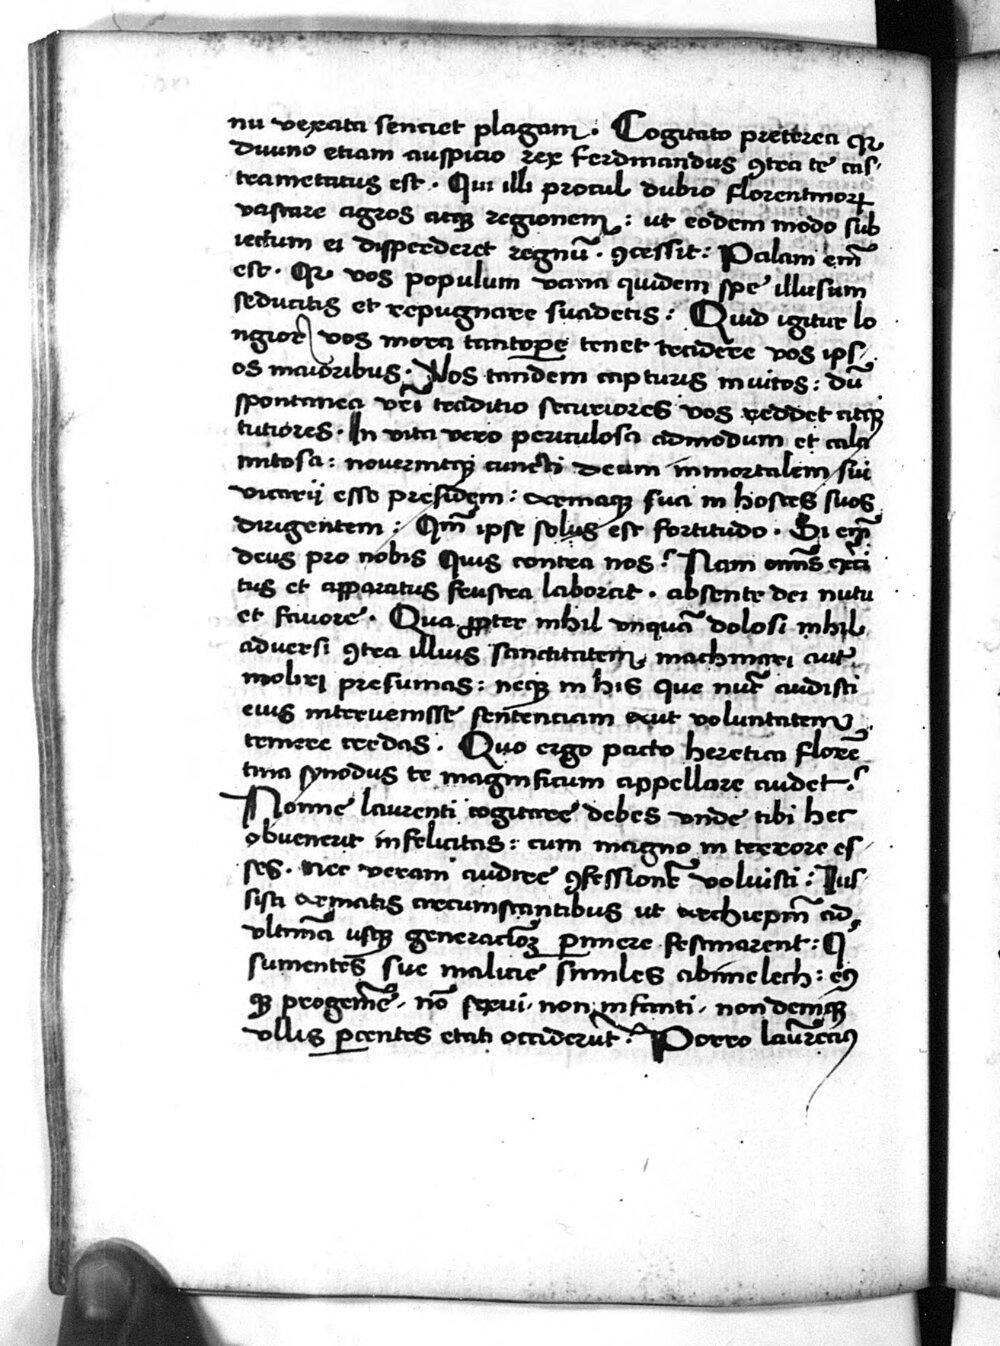 nu vexata sentiet plagam. Cogitato preterea qr
diuino etiam auspicio rex ferdinandus ꝯtra te cas-
trametatus est. Qui illi procul dubio florentinoꝝ
vastare agros atqꝫ regionem: ut eodem modo sub
iectum ei disperderet regnū. ꝯcessit: Palam em̄
est. Qr vos populum vana quidem spe illusum
seducitis et repugnare suadetis: Quid igitur lo
ngior vos mora tantoꝑe tenet tradere vos ips-
os maioribus. Nos tandem capturis inuitos: dū
spontanea vr̄i traditio securiores vos reddet atqꝫ
tutiores. In vita vero periculosa admodum et cala
mitosa: nouerintqꝫ cuncti deum inmortalem sui
vicarij esse presidem: armaqꝫ sua in hostes suos
dirigentem: Qm̄ ipse solus est fortitudo. Si em̄
deus pro nobis Quis contra nos? Nam om̄s exc̄i
tus et apparatus frustra laborat. absente dei nutu
et fauore. Qua ꝓpter nihil vnquā dolosi nihil
aduersi ꝯtra illius sanctitatem machinari aut
moliri presumas: neqꝫ in his que nūc audisti
eius interuenisse sententiam aut voluntatem
temere credas. Quo ergo pacto heretica florē
tina synodus te magnificum appellare audet?
Nonne laurenti cogitare debes vnde tibi hec
obuenerit infelicitas: cum magno in terrore es-
ses. nec veram audire ꝯfessionē voluisti: Ius-
sisti armatis circumstantibus ut archiepm̄ ad
vltimā usqꝫ generacōꝝ ꝑimere festinarent: Q
sumentes sue malicie similes abimelech: eꝰ
qꝫ progeniē. nō sexui. non infanti. non deniqꝫ
vllis ꝑcentes etati occiderūt. Porro laurēciꝰ